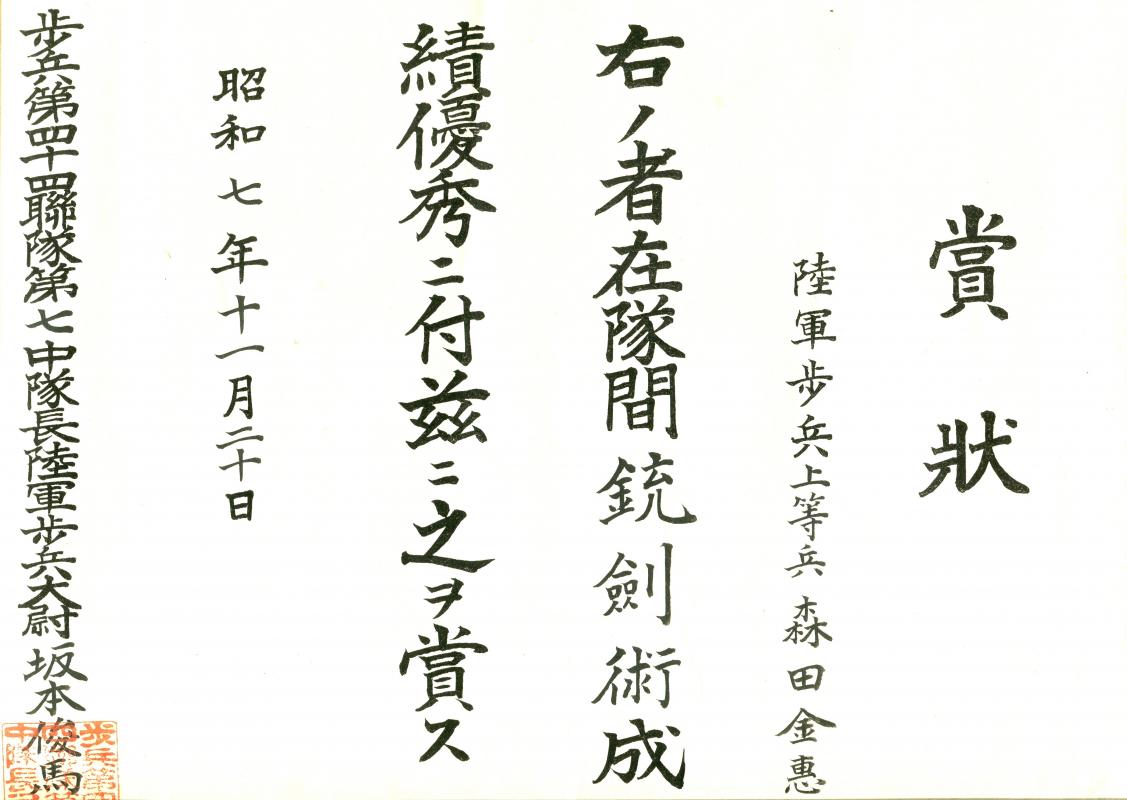 賞狀
陸軍歩兵上等兵 森田金惠
右ノ者在隊間銃劍術成
績優秀ニ付茲ニ之ヲ賞ス
昭和七年十一月二十日
歩兵第四十四聯隊第七中隊長陸軍歩兵大尉坂本俊馬